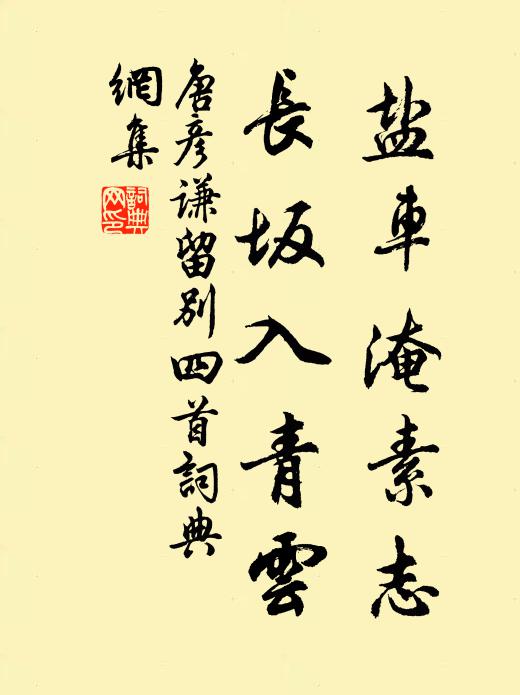 盐車淹素志
長坂入青雲
唐彦谦留別四首詞典
網集
詞典
网印